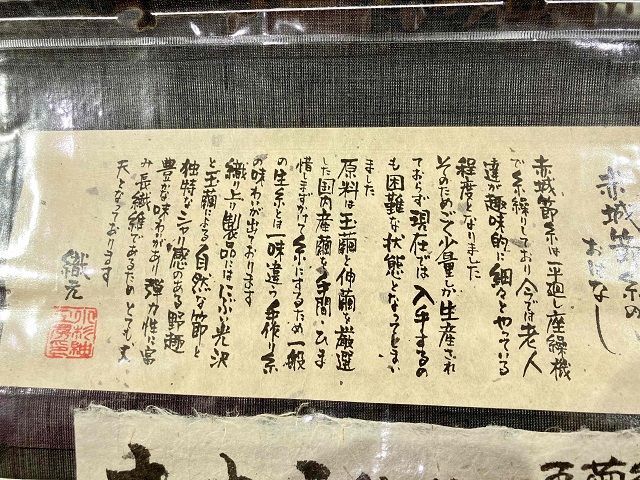 赤城節糸の
おはなし
赤城節糸は一半廻し座繰機
で糸繰りしており今では老人
達が趣味的に細々とやっている
程度となりました
そのためごく少量しか生産され
ておらず現在では入手するの
も困難な状態となってしまい
ました
原料は玉繭と伸繭を厳選
した国内産繭を手間・ひま
惜しまずかけて糸にするため一般
の生糸とは一味違った手作り糸
の味わいが出ております
織り上り製品にはにぶい光沢
と玉繭による自然な節と
独特なシャリ感のある野趣
豊かな味わいがあり弾力性に富
み長繊維であるためとても丈
夫となっております
織元